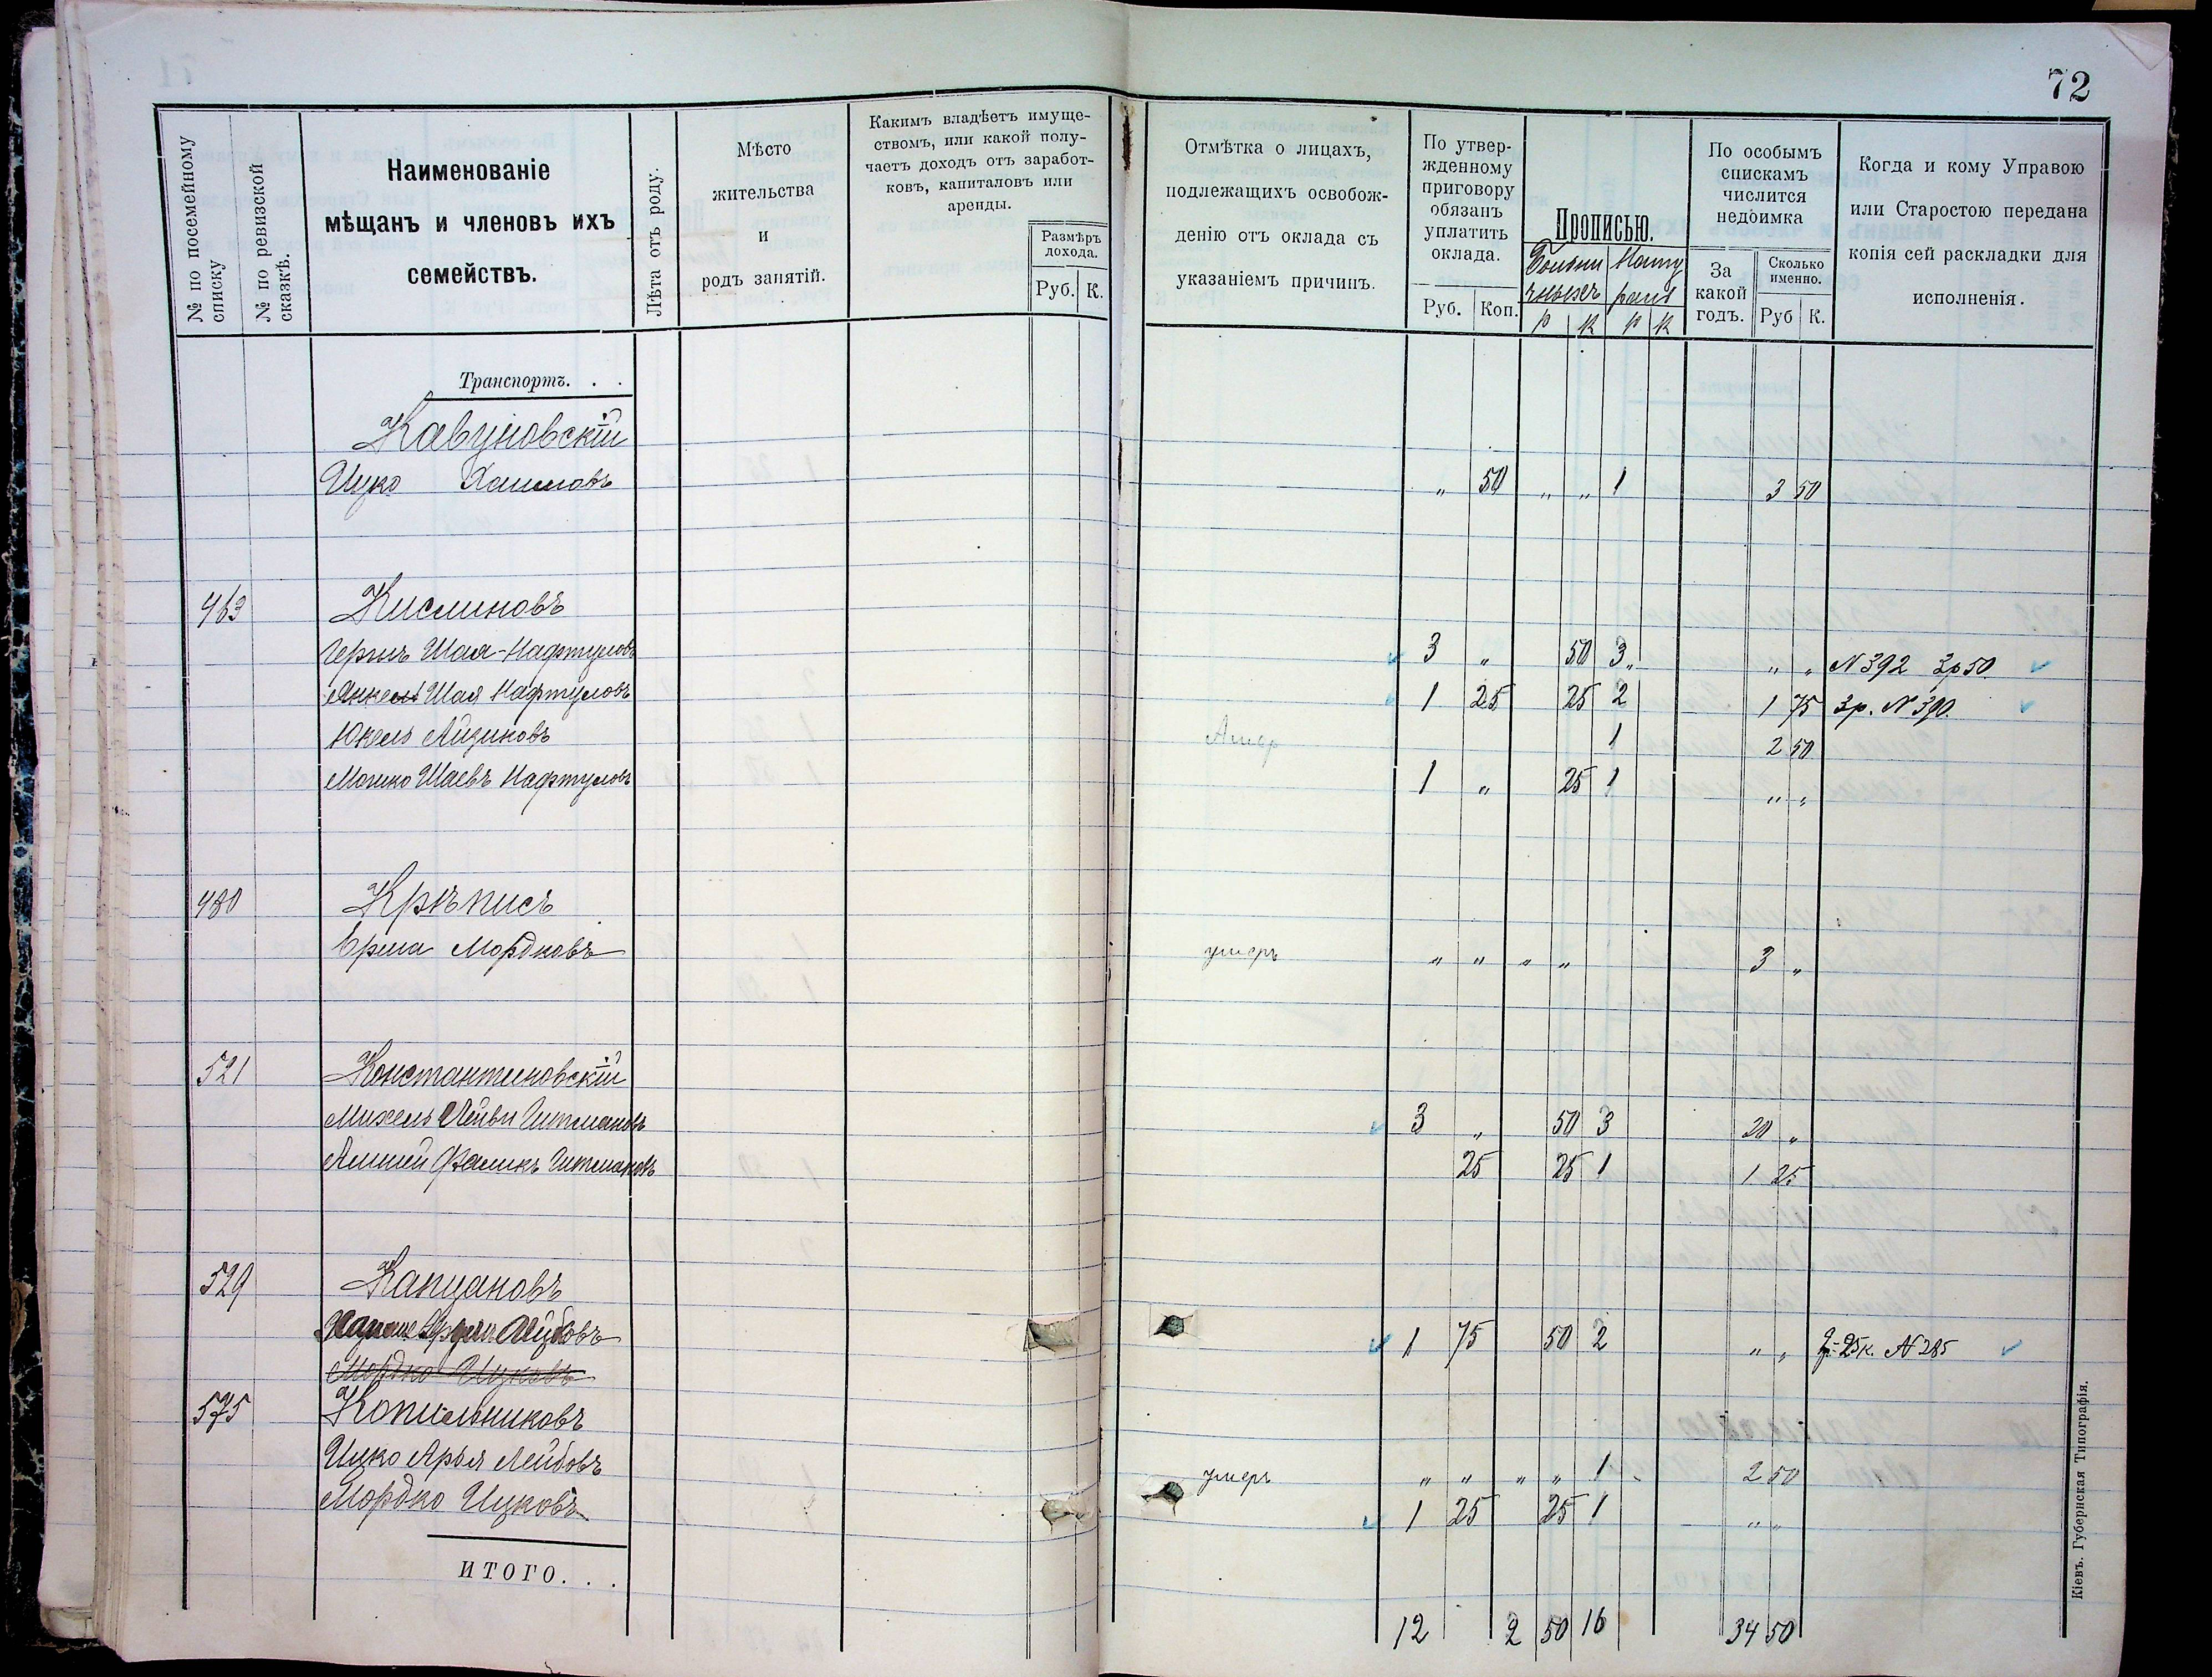 72
№ по посемейному списку
№ по ревизской сказкѣ.
Наименованіе
мѣщанъ и членовъ ихъ
семействъ.
Лѣта отъ роду.
Мѣсто
жительства
и
родъ занятій.
Какимъ владѣетъ имуще-
ствомъ, или какой полу-
чаетъ доходъ отъ заработ-
ковъ, капиталовъ или
аренды.
Размѣръ
дохода.
Руб. К.
Отмѣтка о лицахъ,
подлежащихъ освобож-
денію отъ оклада съ
указаніемъ причинъ.
По утвер-
жденному
приговору
обязанъ
уплатить
оклада.
Руб. Коп.
Прописью.
р к р к
По особымъ
спискамъ
числится
недоимка
За
какой
годъ.
Сколько
именно.
Руб К.
Когда и кому Управою
или Старостою передана
копія сей раскладки для
исполненія.
Транспортъ. . .
Кавуновскій
Ицко Хаимовъ „ 50 „ „ 1 3 50
463 Кислиновъ
Шая-Нафтуловъ 3 „ 50 3 „ „ „ N 392 3р 50
Янкель Шая Нафтуловъ 1 25 25 2 1 75 3р. N 390.
Юкель Айзиковъ 1 2 50
Мошко Шаевъ Нафтуловъ 1 „ 25 1 „ „
480 Крѣписъ
Ерма Мордковъ умеръ „ „ „ „ 3 „
521 Константиновскій
Михель Лейви Гитмановъ 3 „ 50 3 20 „
Фаликъ Гитмановъ 25 25 1 1 25
529 Капцановъ
Лейбовъ 1 75 50 2 „ „ 25к. N 285
Мордко Ицковъ
575 Копильниковъ
Ицко Арья Лейбовъ умеръ „ „ „ „ 1 2 50
Мордко Ицковъ 1 25 25 1 „ „
ИТОГО. . .
12 2 50 16 34 50
Кіевъ. Губернская Типографія.